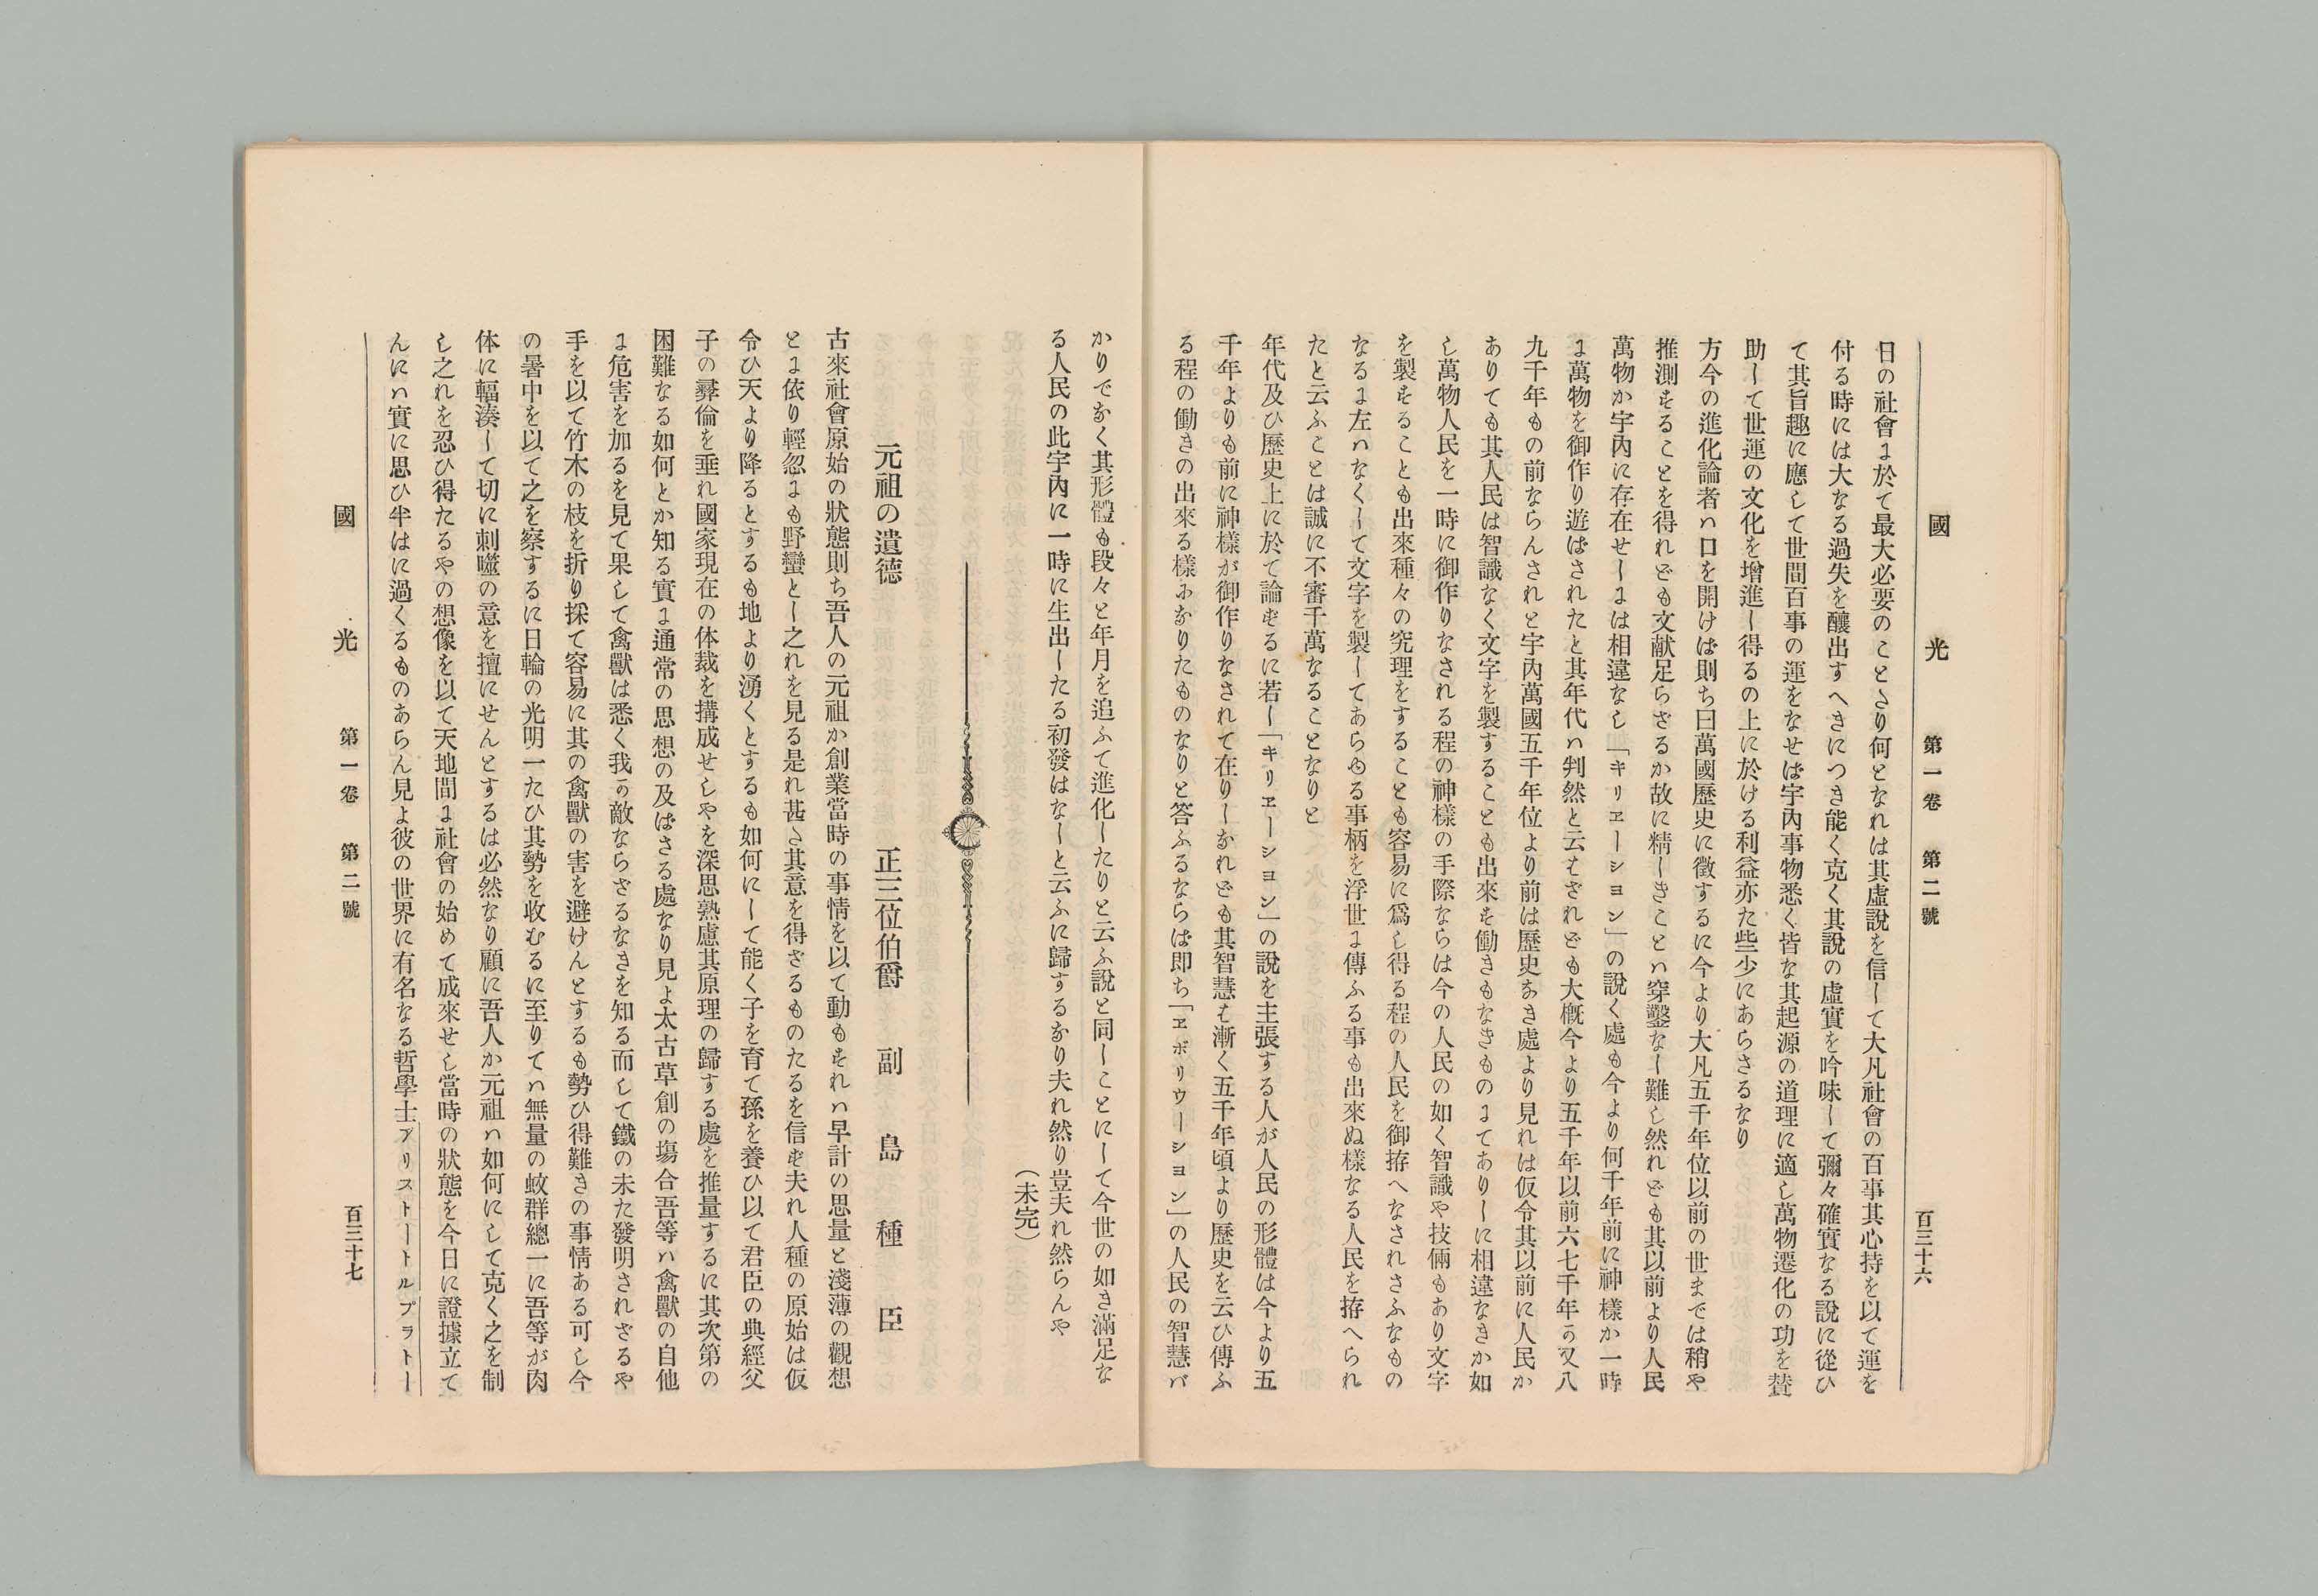 國光 第一卷 第二號 百三十六
日の社會に於て最大必要のことなり何となれは其虛說を信して大凡社會の百事其心持を以て運を
付る時には大なる過失を釀出すへきにつき能く克く其說の虛實を吟味して彌々確實なる說に從ひ
て其旨趣に應して世間百事の運をなせは宇內事物悉く皆な其起源の道理に適し萬物遷化の功を賛
助して世運の文化を增進し得るの上に於ける利益亦た些少にあらさるなり
方今の進化論者ハ口を開けば則ち曰萬國歷史に徵するに今より大凡五千年位以前の世までは稍や
推測することを得れども文献足らざるか故に精しきことハ穿鑿なし難し然れども其以前より人民
萬物か宇內に存在せしには相違なし「キリヱーシヨン」の說く處も今より何千年前に神樣か一時
に萬物を御作り遊ばされたと其年代ハ判然と云はざれども大槪今より五千年以前六七千年か又八
九千年もの前ならんされと宇內萬國五千年位より前は歷史なき處より見れは仮令其以前に人民か
ありても其人民は智識なく文字を製することも出來ず働きもなきものにてありしに相違なきか如
し萬物人民を一時に御作りなされる程の神樣の手際ならは今の人民の如く智識や技倆もあり文字
を製することも出來種々の究理をすることも容易に爲し得る程の人民を御拵へなされさふなもの
なるに左ハなくして文字を製してあらゆる事柄を浮世に傳ふる事も出來ぬ樣なる人民を拵へられ
たと云ふことは誠に不審千萬なることなりと
年代及ひ歷史上に於て論ずるに若し「キリヱーシヨン」の說を主張する人が人民の形體は今より五
千年よりも前に神樣が御作りなされて在りしなれども其智慧は漸く五千年頃より歷史を云ひ傳ふ
る程の働きの出來る樣になりたものなりと答ふるならば即ち「ヱボリウーシヨン」の人民の智慧バ
かりでなく其形體も段々と年月を追ふて進化したりと云ふ說と同しことにして今世の如き滿足な
る人民の此宇內に一時に生出したる初發はなしと云ふに歸するなり夫れ然り豈夫れ然らんや
（未完）
元祖の遺德 正三位伯爵 副島種臣
古來社會原始の狀態則ち吾人の元祖か創業當時の事情を以て動もすれハ早計の思量と淺薄の觀想
とに依り輕忽にも野蠻とし之れを見る是れ甚だ其意を得ざるものたるを信ず夫れ人種の原始は仮
令ひ天より降るとするも地より湧くとするも如何にして能く子を育て孫を養ひ以て君臣の典經父
子の彝倫を垂れ國家現在の体裁を搆成せしやを深思熟慮其原理の歸する處を推量するに其次第の
困難なる如何とか知る實に通常の思想の及ばさる處なり見よ太古草創の塲合吾等ハ禽獸の自他
に危害を加るを見て果して禽獸は悉く我か敵ならざるなきを知る而して鐵の未た發明されさるや
手を以て竹木の枝を折り採て容易に其の禽獸の害を避けんとするも勢ひ得難きの事情ある可し今
の暑中を以て之を察するに日輪の光明一たひ其勢を收むるに至りてハ無量の蚊群總一に吾等が肉
体に輻湊して切に刺噬の意を擅にせんとするは必然なり顧に吾人か元祖ハ如何にして克く之を制
し之れを忍ひ得たるやの想像を以て天地間に社會の始めて成來せし當時の狀態を今日に證據立て
んにハ實に思ひ半はに過くるものあらん見よ彼の世界に有名なる哲學士アリストートルプラトー
國光 第一卷 第二號 百三十七